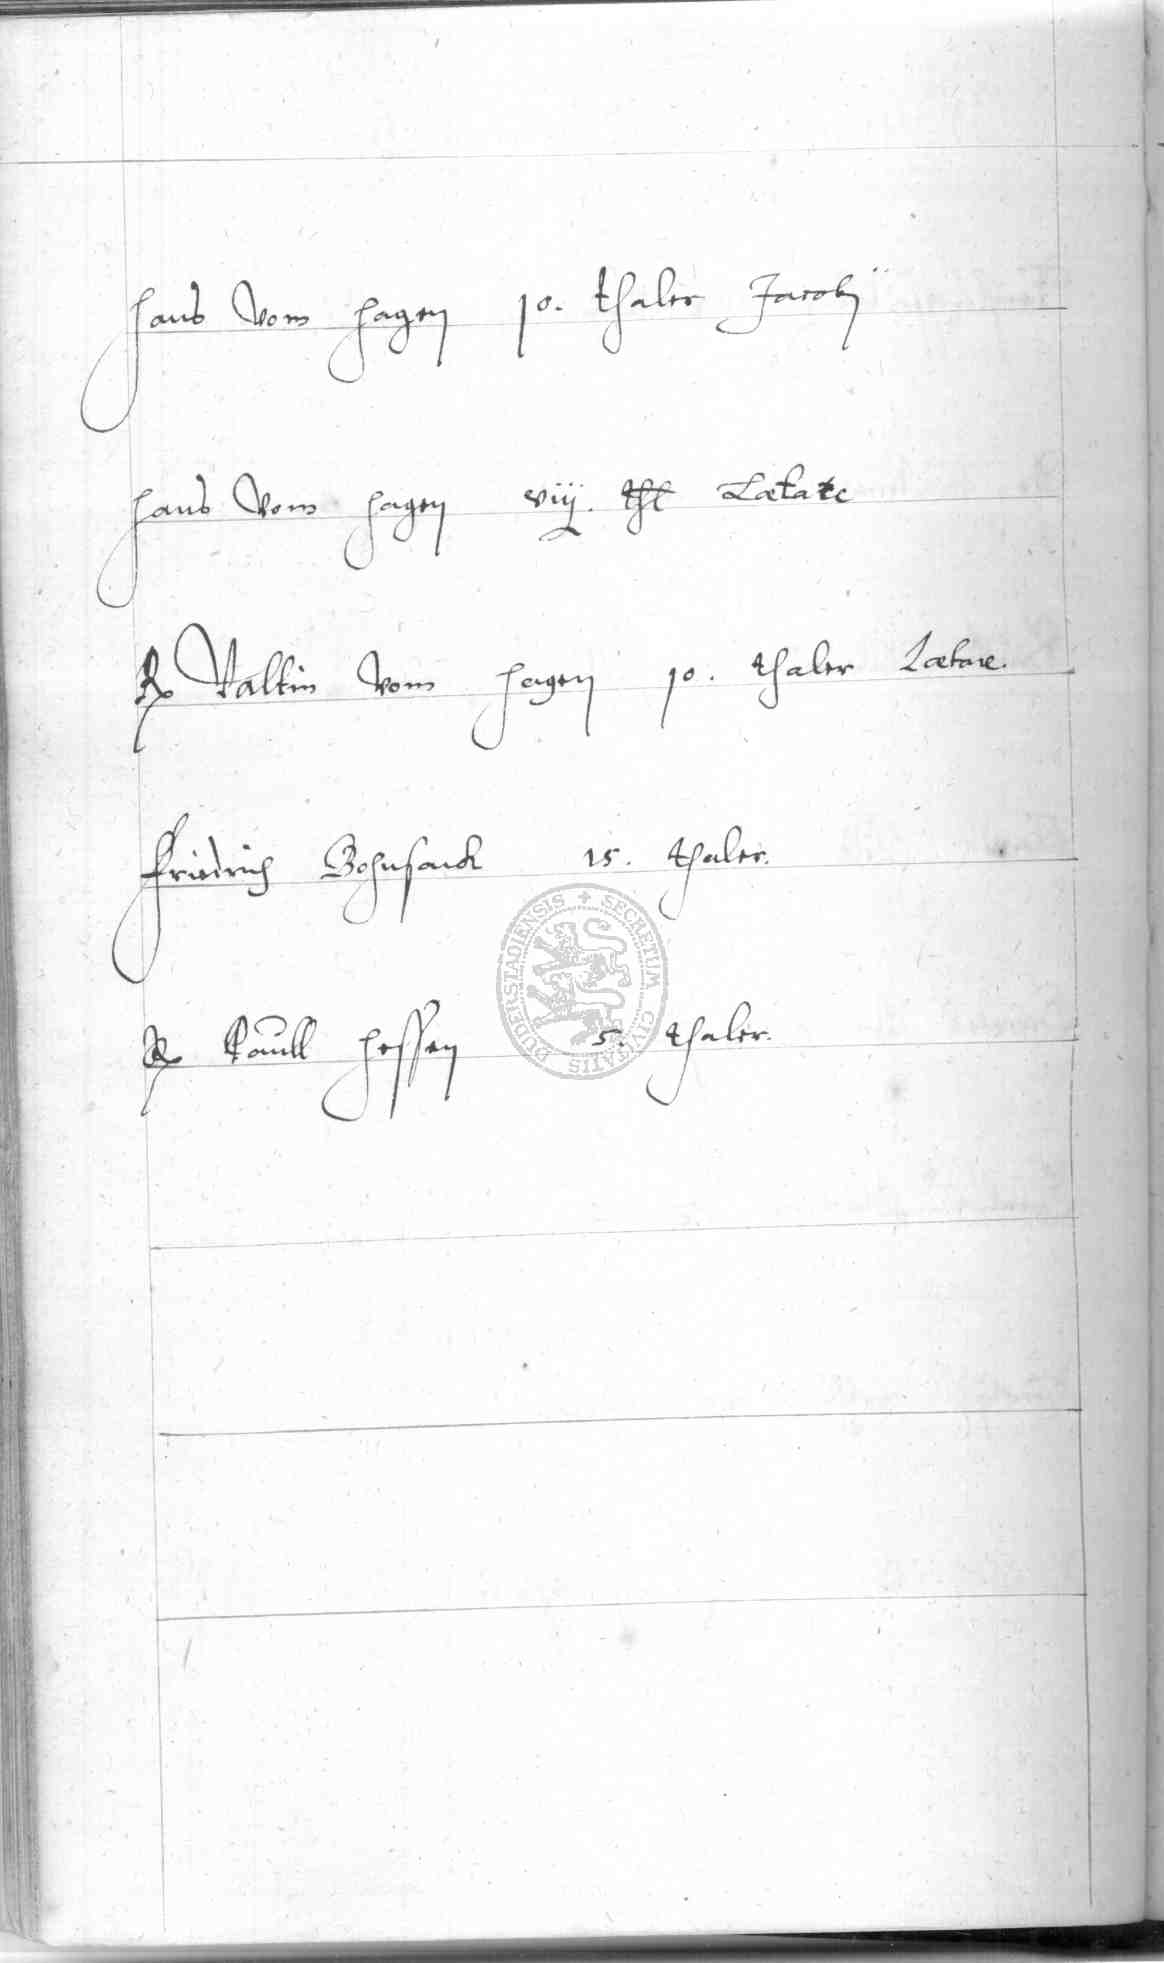 Hans Vom Hagen 10. thaler Jacobÿ
Hans Vom Hagen viij. thl Lætare
Rx Valtin Vom Hagen 10. thaler Lætare.
Friedrich Bohnsack 15. thaler.
SECRETUM CIVITATIS DUDERSTADIENSIS
Rx Paull Hessen 5. thaler.